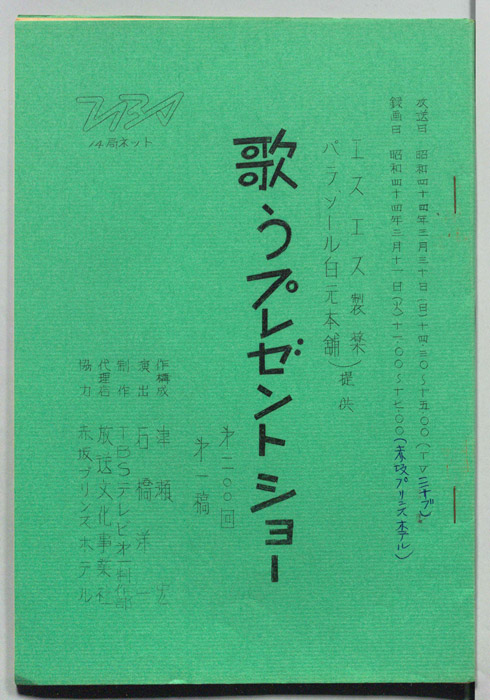 放送日 昭和四十四年三月三十日(日)十四・三〇〜十五・〇〇
録画日 昭和四十四年三月十一日(火)十一・〇〇〜十七・〇〇(赤坂プリンスホテル)
エスエス製薬
パラゾール白元本舗)提供
歌うプレゼントショー
第二〇〇回
第一稿
TBS
14局ネット
作構成 津瀬 宏
演出 石橋洋一
制作 TBSテレビ第一制作部
代理店 放送文化事業社
協力 赤坂プリンスホテル